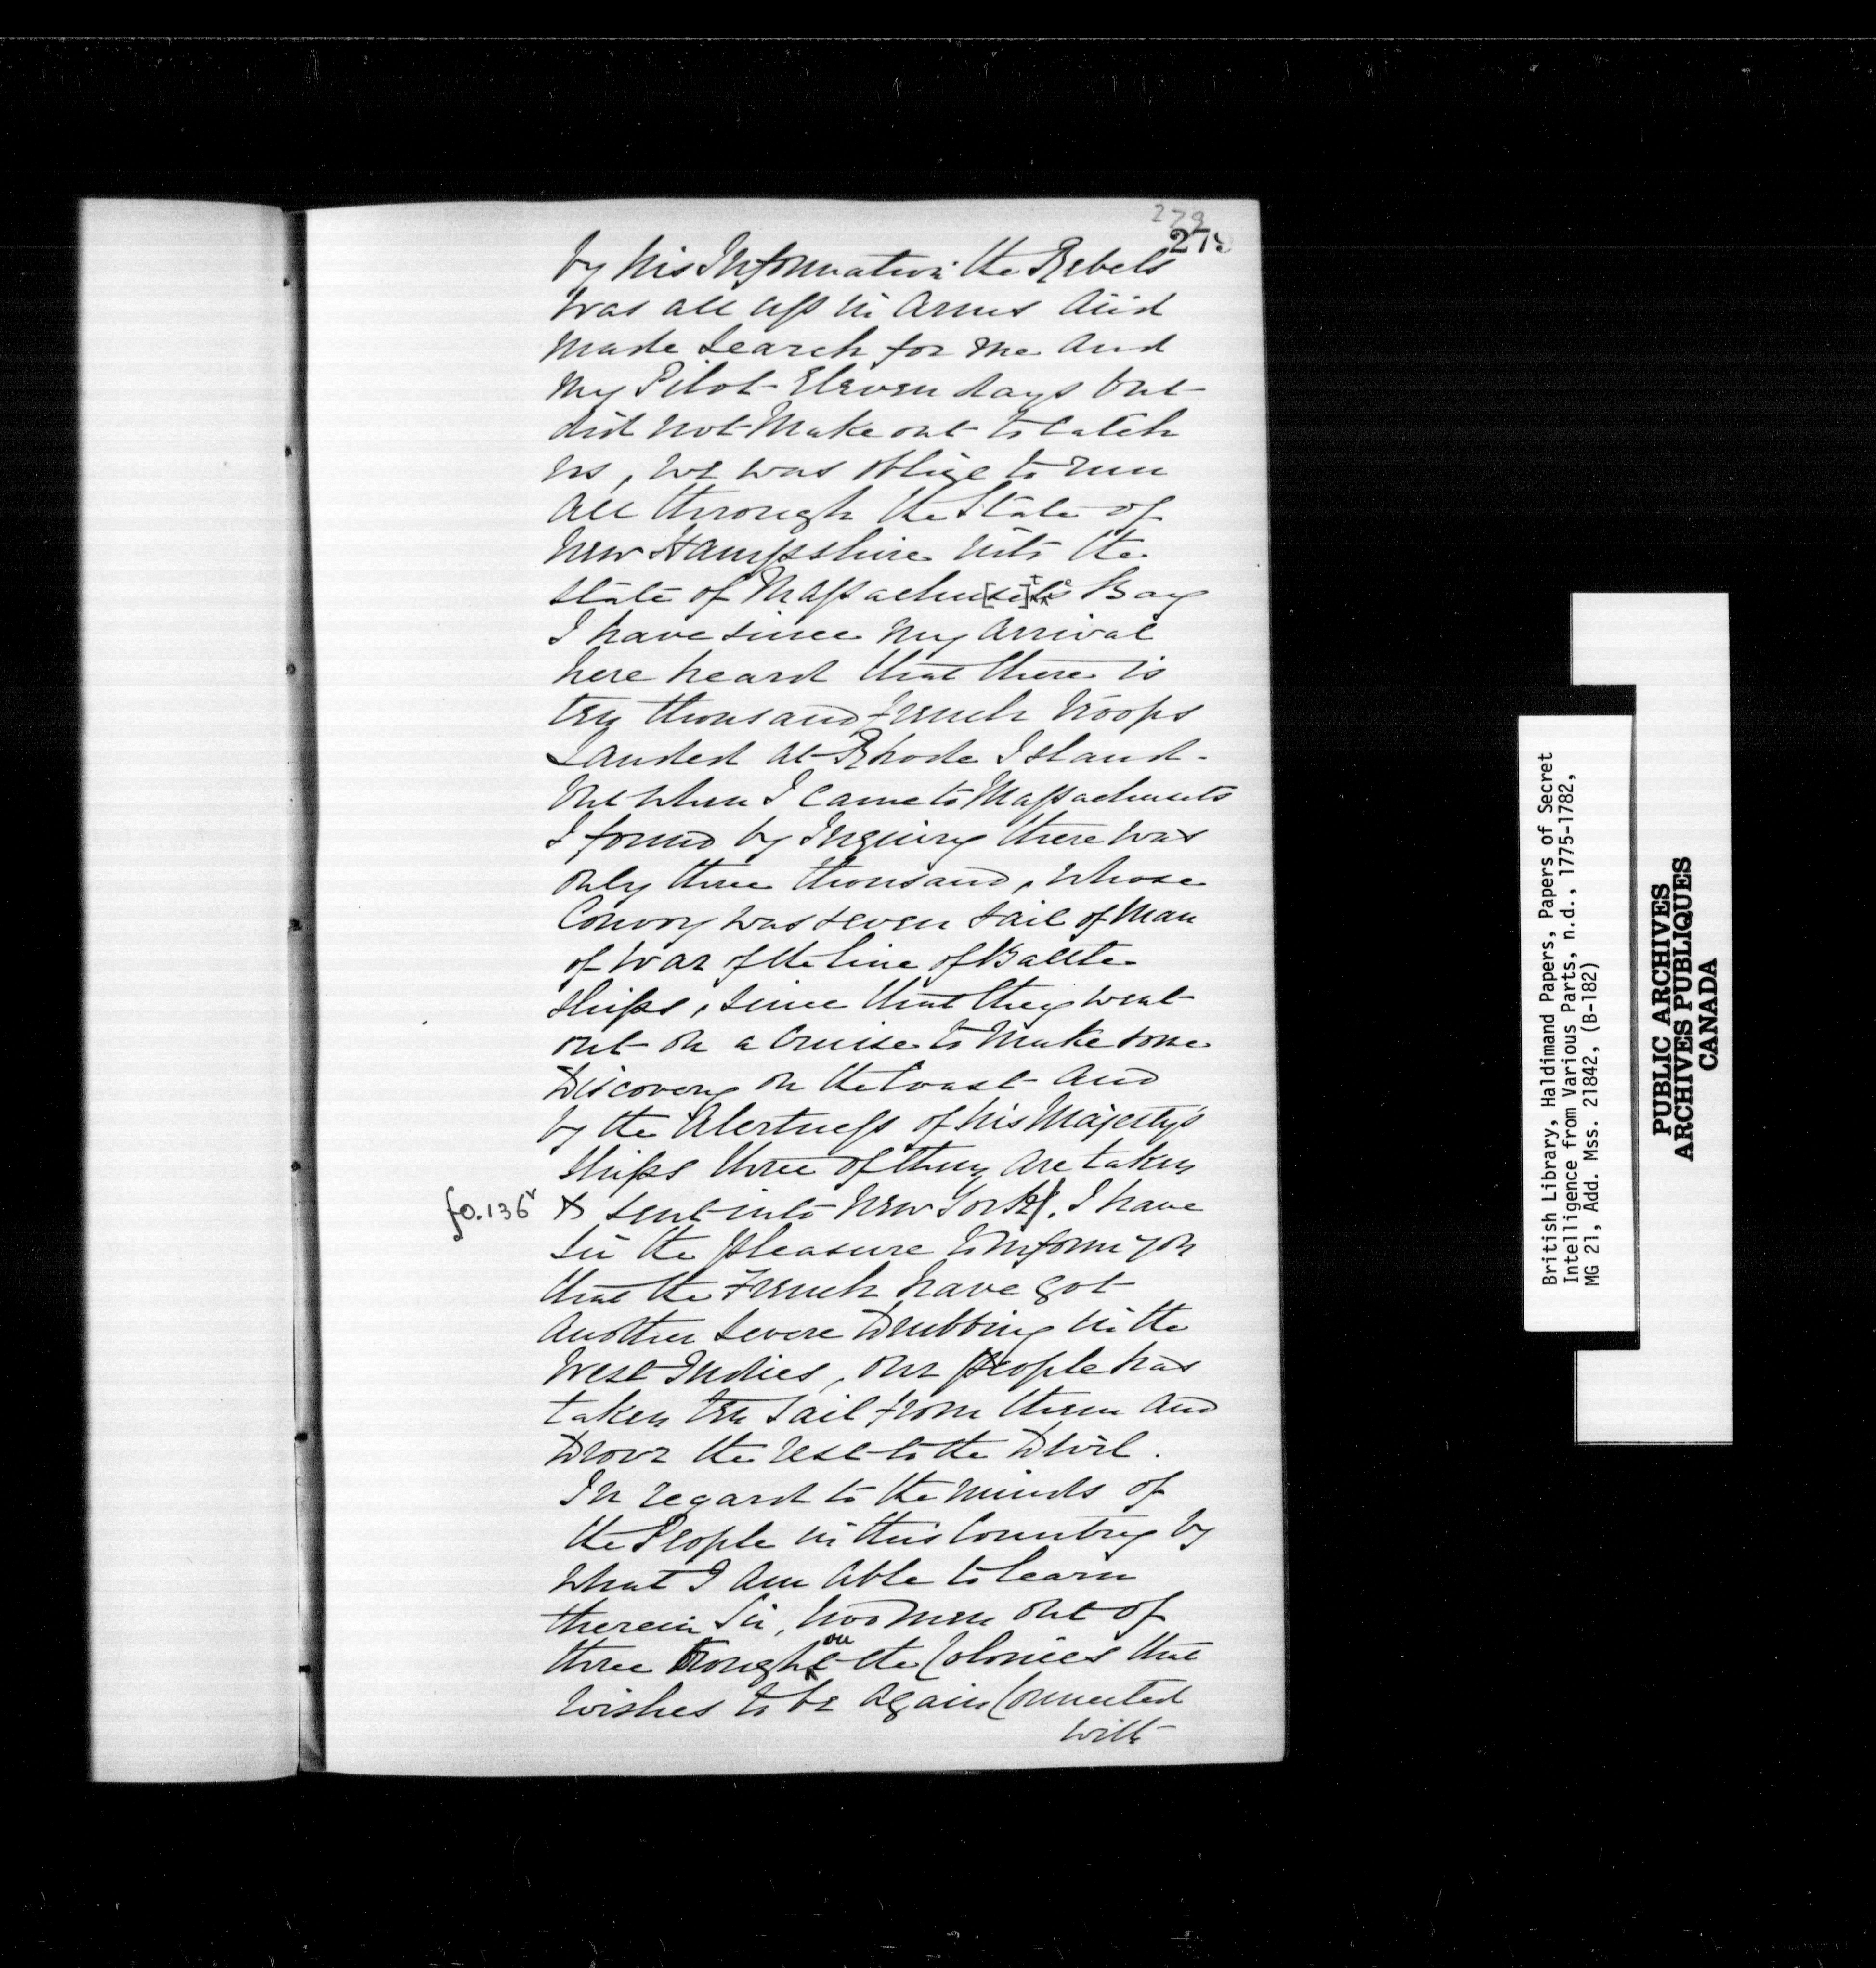 279
279
by his Information the Rebels
was all up in Arms And
made Search for me And
my Pilot Eleven days but
did not Make out to catch
us, we was oblige to run
all through the State of
New Hampshire into the
state of Massachus[e]tts Bay
I have since my Arrival
here heard that there is
ten thousand French troops
Landed at Rhode Island.
But when I came to Massachusets
I found by Inquiry there was
only three thousand, whose
Convoy was seven sail of Man
of War of the line of Battle
Ships, since that they went
out on a Cruise to Make some
Discovery on the Coast and
by the Alertness of his Majesty's
Ships three of them are taken
fo. 136v & sent into New York. I have
Sir the pleasure to inform you
that the French have got
another severe Drubbing in the
West Indies, our people has
taken ten Sail from them and
Drove the rest to the Divil.
In regard to the minds of
the People in this Country by
what I am able to learn
therein Sir, two men out of
three throughout the Colonies that
wishes to be again Connected
with
British Library, Haldimand Papers, Papers of Secret
Intelligence from Various Parts, n.d., 1775-1782,
MG 21, Add. Mss. 21842, (B-182)
PUBLIC ARCHIVES
ARCHIVES PUBLIQUES
CANADA